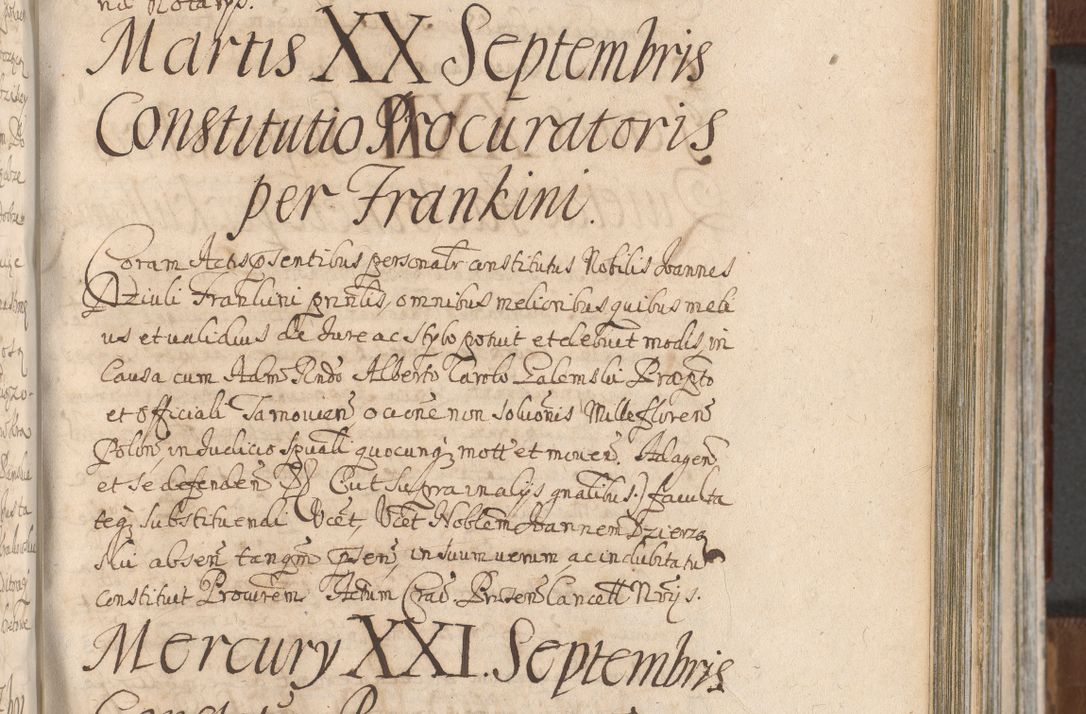 næ Notarys.
Martis XX Septembris
Constitutio Procuratoris
per Frankini.
Coram Actis psentibus personalr constitutus Nobilis Joannes
Dziuli Frankini prinlis, omnibus melioribus quibus meli
us et validius de Jure ac stylo potuit et debuit modis, in
Causa cum Adm Rndo Alberto Carolo Lalemski Præpto
et Officiali Tarnovien occone non soluonis Mille floren
Polon, in Judicio Spuali quocunq; mott et moven. Ad agen
et se defenden PP (ut supra in alijs gnalibus.) faculta
teq; substituendi Vcet, Vcet Noblem Joannem Dzierzg
ski absen tanqm psen, in suum verum ac indubitatu
constituit Procurem Actum Crac. Prsen Cancell Nrijs.
Mercury XXI. Septembris